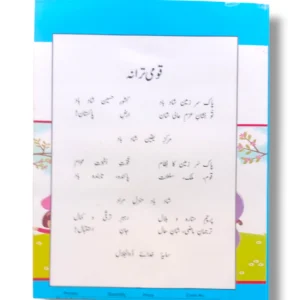 قومی ترانہ
پاک سر زمین شاد باد کشور حسین شاد باد
تو نشان عزم عالی شان ارض پاکستان!
مرکز یقین شاد باد
پاک سر زمین کا نظام قوت اخوت عوام
قوم، ملک، سلطنت پائندہ تابندہ باد
شاد باد منزل مراد
پرچم ستارہ و ہلال رہبر ترقی و کمال
ترجمان ماضی، شان حال جان استقبال!
سایۂ خدائے ذوالجلال